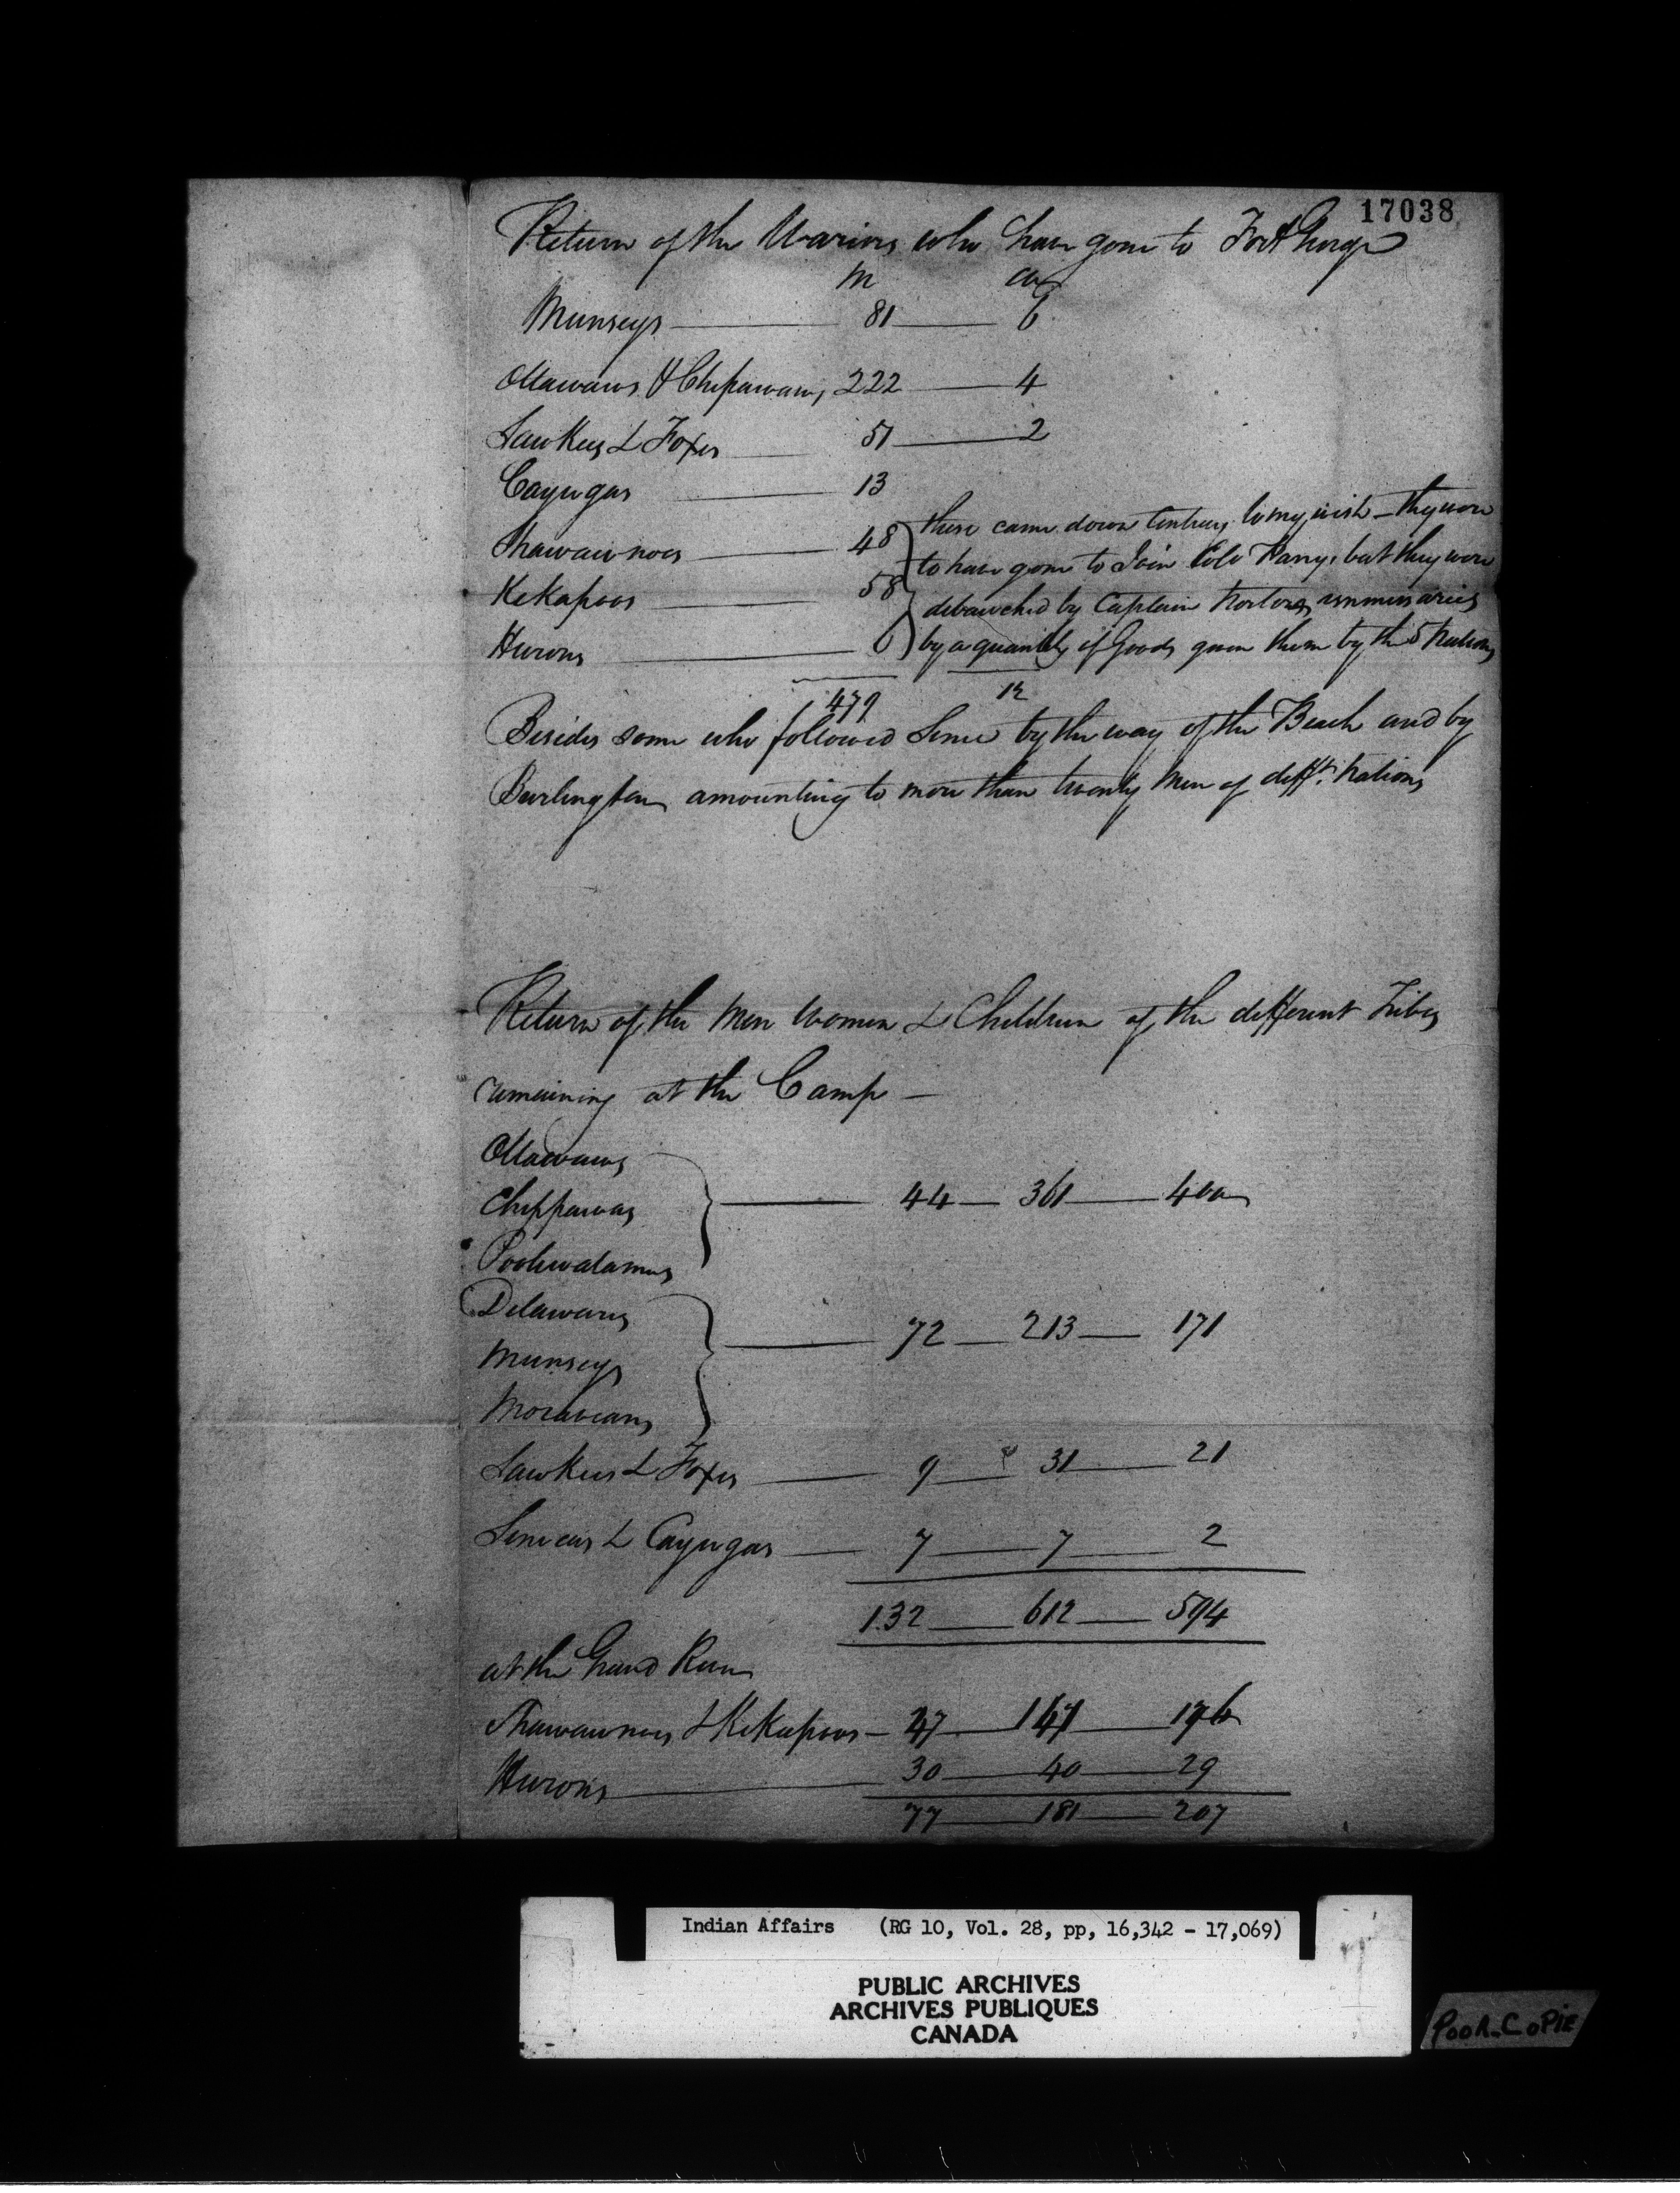 17038
Return of the Wariors who have gone to Fort George
M W
Munseys 81 6
Ottawaws & Chipawaws, 222 4
Sawkeys & Foxes 51 2
Cayugas 13
Shawawnoes 48 these came down Contrary to my wish – they were
to have gone to Join Colo Parry, but they were
Kekapoos 58
debauched by Captain Nortons emmissaries
Hurons 6 by a quantity of Goods given them by the 5 Nations
479 12
Besides some who followed Since by the way of the Beach and by
Burlington amounting to more than twenty Men of difft. Nations
Return of the Men Women & Children of the different Tribes
remaining at the Camp –
Ottawaws
Chippawas 44 – 361 – 400
Pootewatamus
Delawares
72 – 213 – 171
Munseys
Moravians
Sawkeus & Foxes 9 31 21
Senecas & Cayugas 7 7 2
132 612 594
at the Grand River
Shawawnoes & Kekapoos – 47 – 141 – 176
Hurons 30 40 29
77 181 207
Indian Affairs (RG 10, Vol. 28, pp, 16,342 - 17,069)
PUBLIC ARCHIVES
ARCHIVES PUBLIQUES
CANADA
POOR-COPIE